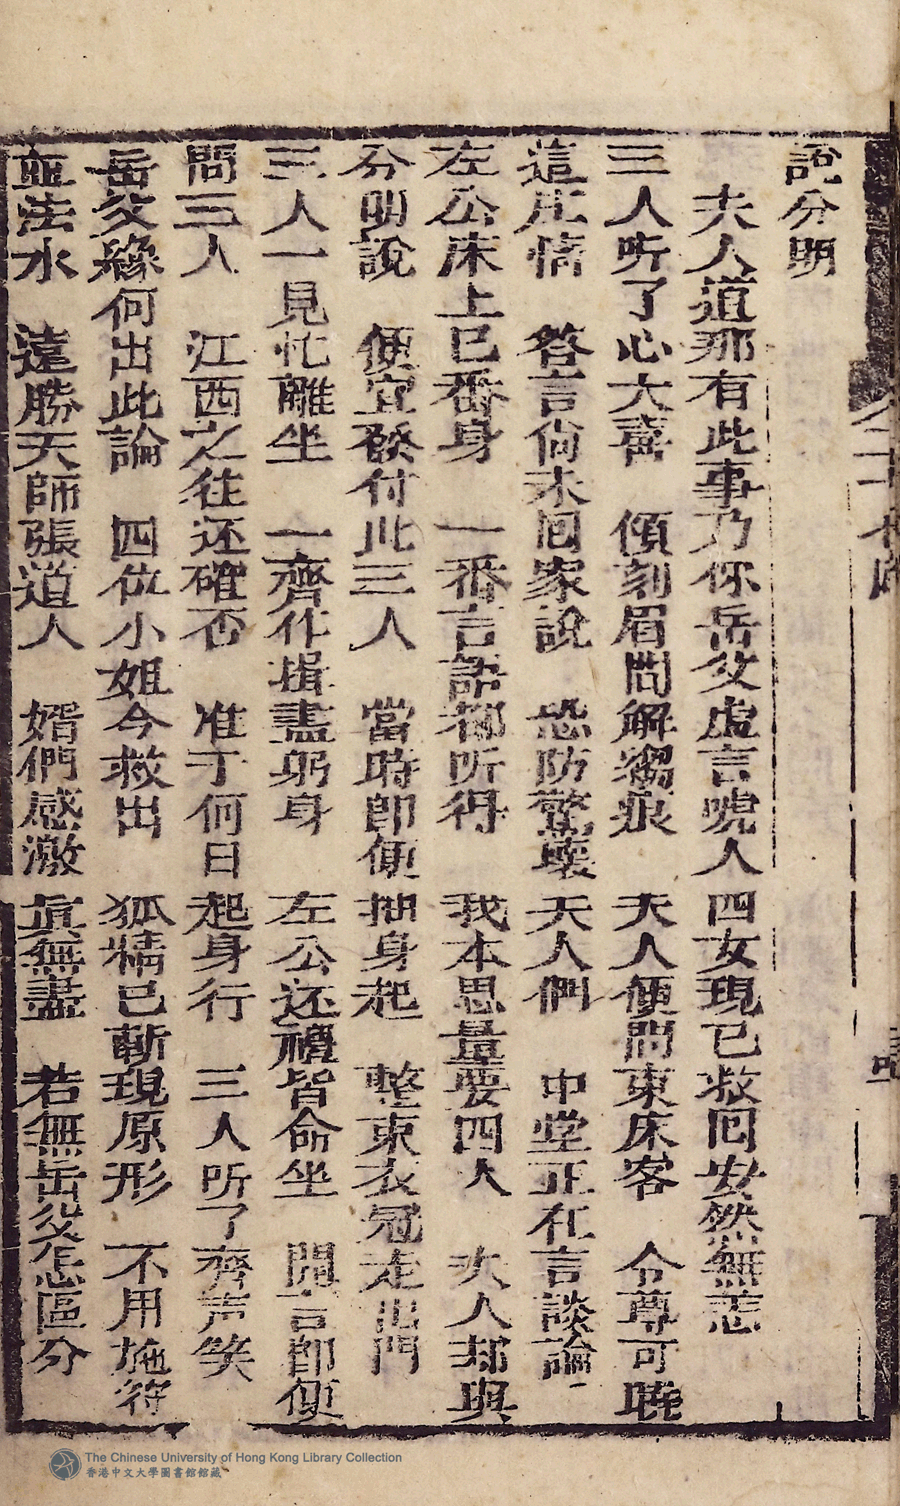 說分明
夫人道那有此事乃你岳父虛言唬人四女現已救囘安然無恙
三人听了心大喜 傾刻眉間解縐痕 夫人便問東床客 令尊可曉
這庄情 答言尙未囘家說 恐防驚壞夫人們 中堂正在言談論
左公床上已番身 一番言語都听得 我本思量要四人 夫人却與
分明說 便宜發付此三人 當時卽便抽身起 整束衣冠走出門
三人一見忙離坐 一齊作揖盡躬身 左公还禮皆命坐 開言卽便
問三人 江西之往还確否 准于何日起身行 三人听了齊声笑
岳父緣何出此論 四位小姐今救出 狐精已斬現原形 不用施符
並法水 遠勝天師張道人 婿們感激真無盡 若無岳父怎區分
The Chinese University of Hong Kong Library Collection
香港中文大學圖書館館藏